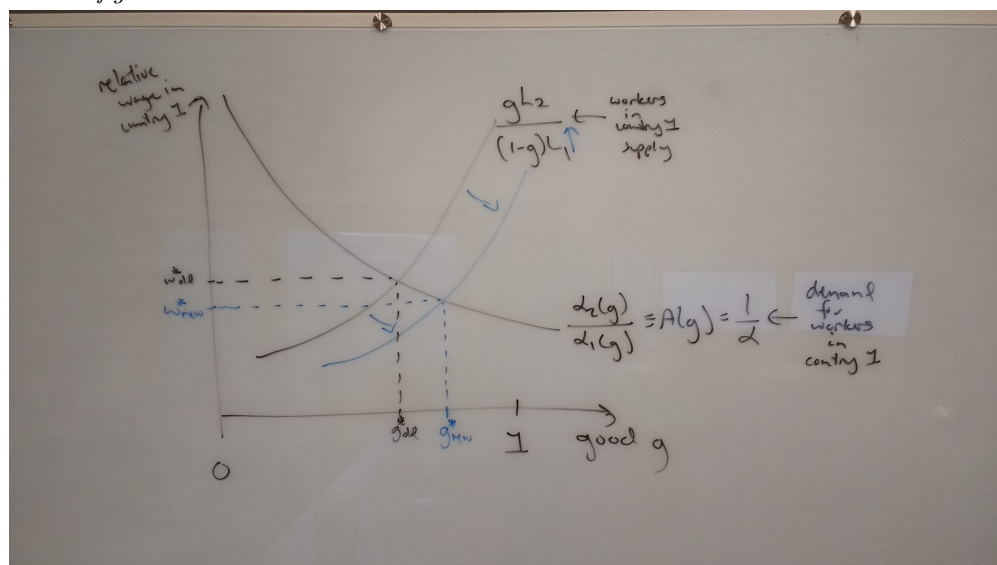 relative
wage in
country 1
gL₂
(1-g)L₁ ↑
← workers
in
country 1
supply
w*old
w*new
α₂(g)
α₁(g)
≡ A(g) = 1
α
← demand
for
workers
in
country 1
g*old
g*new
1
good g
0